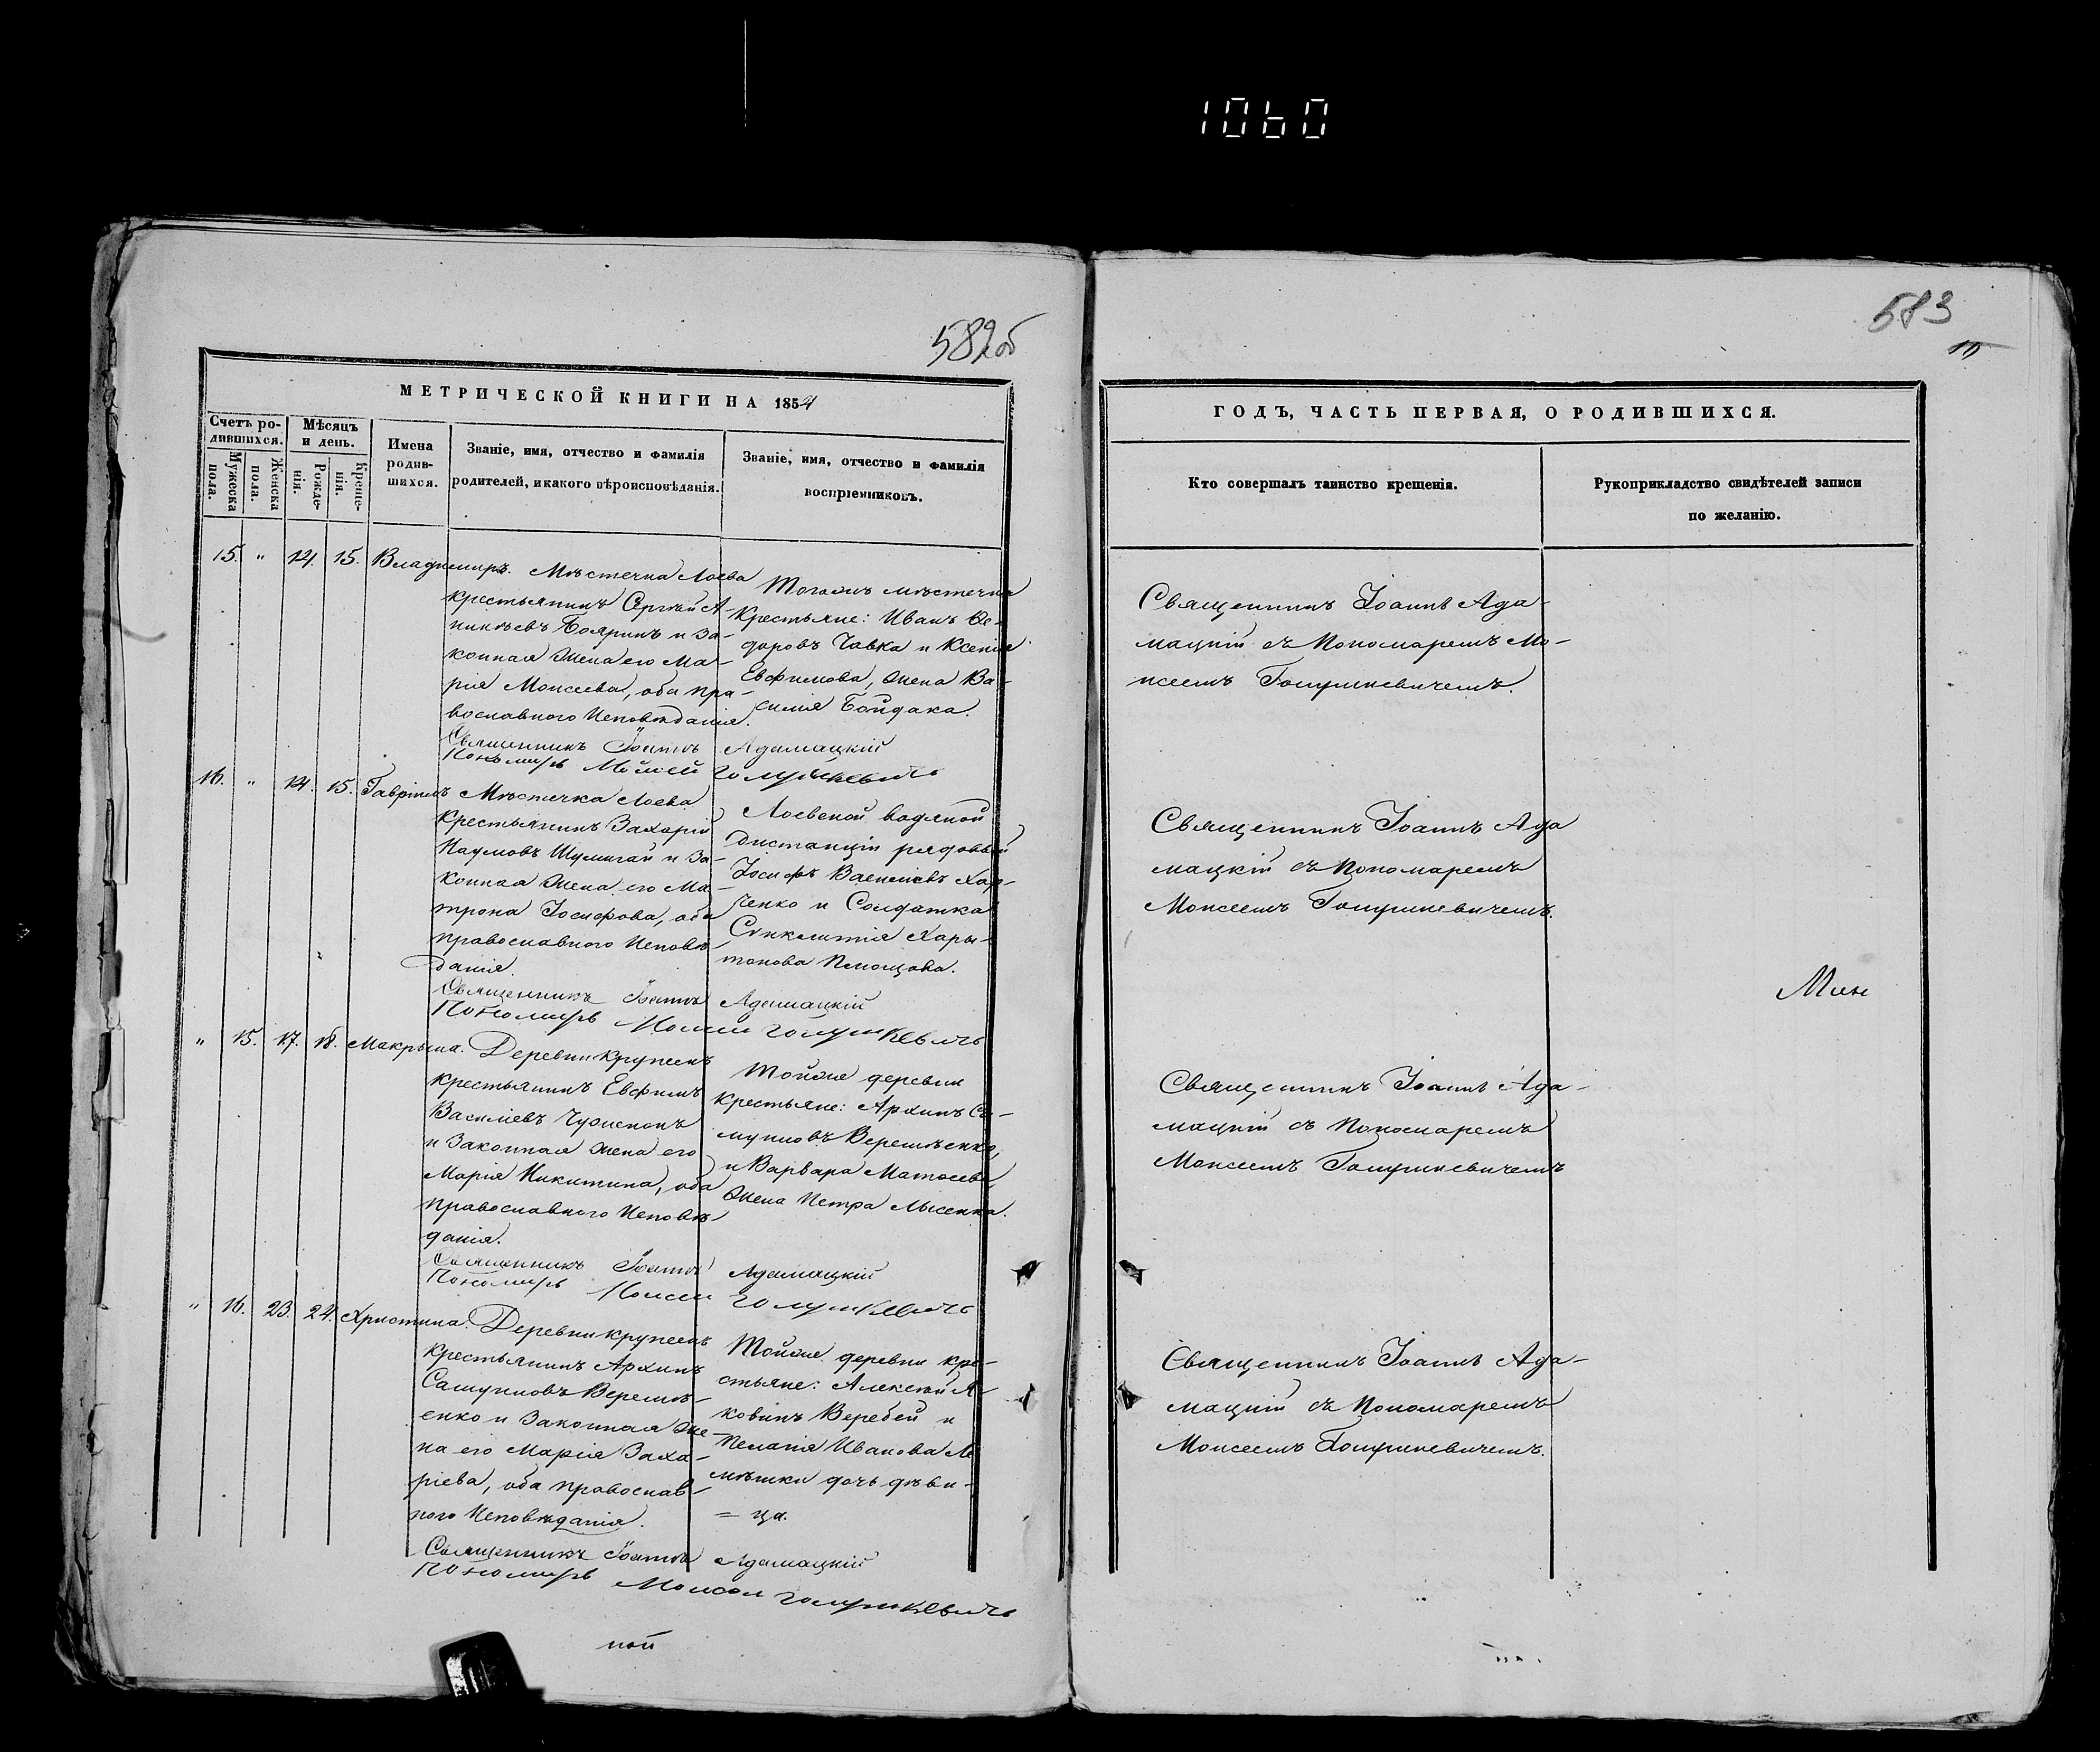 1060
582об
МЕТРИЧЕСКОЙ КНИГИ НА 1854
Счетъ ро-
дившихся.
Мѣсяцъ
и день.
Мужеска
пола.
Женска
пола.
Рожде-
нія.
Креще-
нія.
Имена
родив-
шихся.
Званіе, имя, отчество и фамилія
родителей, и какого вѣроисповѣданія.
Званіе, имя, отчество и фамилія
воспріемниковъ.
15. " 14. 15. Владимиръ.
Мѣстечка Лоева
крестьянинъ Сергѣй А-
никѣевъ Бояринъ и за-
конная жена его Ма-
рія Моисеева, оба пра-
вославного исповѣданія.
Тогожъ мѣстечка
крестьяне: Иванъ Ѳе-
доровъ Чавка и Ксенія
Евфимова, жена Ва-
силія Бойдака.
Священникъ Іоаннъ Адамацкій
Пономарь Моисей Голушкевичъ
16. " 14. 15. Гавріилъ
Мѣстечка Лоева
крестьянинъ Захарій
Наумовъ Шумигай и за-
конная жена его Ма-
трона Іосифова, оба
православного исповѣ-
данія.
Лоевской водяной
дистанціи рядовый
Іосифъ Васильевъ Хар-
ченко и Солдатка
Сѵнклитія Хари-
тонова
Священникъ Іоаннъ Адамацкій
Пономарь Моисей Голушкевичъ
" 15. 17. 18. Макрина.
Деревни Крупеекъ
крестьянинъ Евфимъ
Васильевъ
и законная жена его
Марія Никитина, оба
православного исповѣ-
данія.
Тойже деревни
крестьяне: Архипъ Са-
муиловъ Веремѣенко,
и Варвара Матѳеева,
жена Петра Лысенка.
Священникъ Іоаннъ Адамацкій
Пономарь Моисей Голушкевичъ
" 16. 23. 24. Христина.
Деревни Крупеекъ
крестьянинъ Архипъ
Самуиловъ Веремѣ-
енко и законная же-
на его Марія Заха-
ріева, оба православ-
ного исповѣданія.
Тойже деревни кре-
стьяне: Алексѣй Я-
ковлевъ Веребей и
Пелагія Иванова Ле-
мѣшки дочь дѣви-
= ца.
Священникъ Іоаннъ Адамацкій
Пономарь Моисей Голушкевичъ
ной
583
ГОДЪ, ЧАСТЬ ПЕРВАЯ, О РОДИВШИХСЯ.
Кто совершалъ таинство крещенія.
Рукоприкладство свидѣтелей записи
по желанію.
Священникъ Іоаннъ Ада-
мацкій съ Пономаремъ Мо-
исеемъ Голушкевичемъ.
Священникъ Іоаннъ Ада
мацкій съ Пономаремъ
Моисеемъ Голушкевичемъ.
Священникъ Іоаннъ Ада-
мацкій съ Пономаремъ
Моисеемъ Голушкевичемъ
Священникъ Іоаннъ Ада-
мацкій съ Пономаремъ
Моисеемъ Голушкевичемъ.
Мин